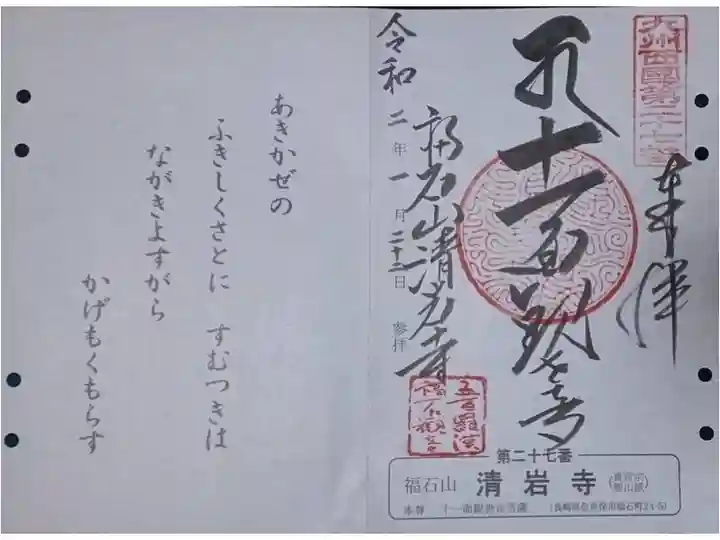 九州西國第二十七番
奉拝
十一面観世音
福石山清岩寺
令和二年一月二十二日 参拝
五百羅漢
福石観音
第二十七番
福石山 清岩寺
本尊 十一面観世音菩薩 (長崎県佐世保市福石町24-5)
あきかぜの
ふきしくさとに すむつきは
ながきよすがら
かげもくもらす